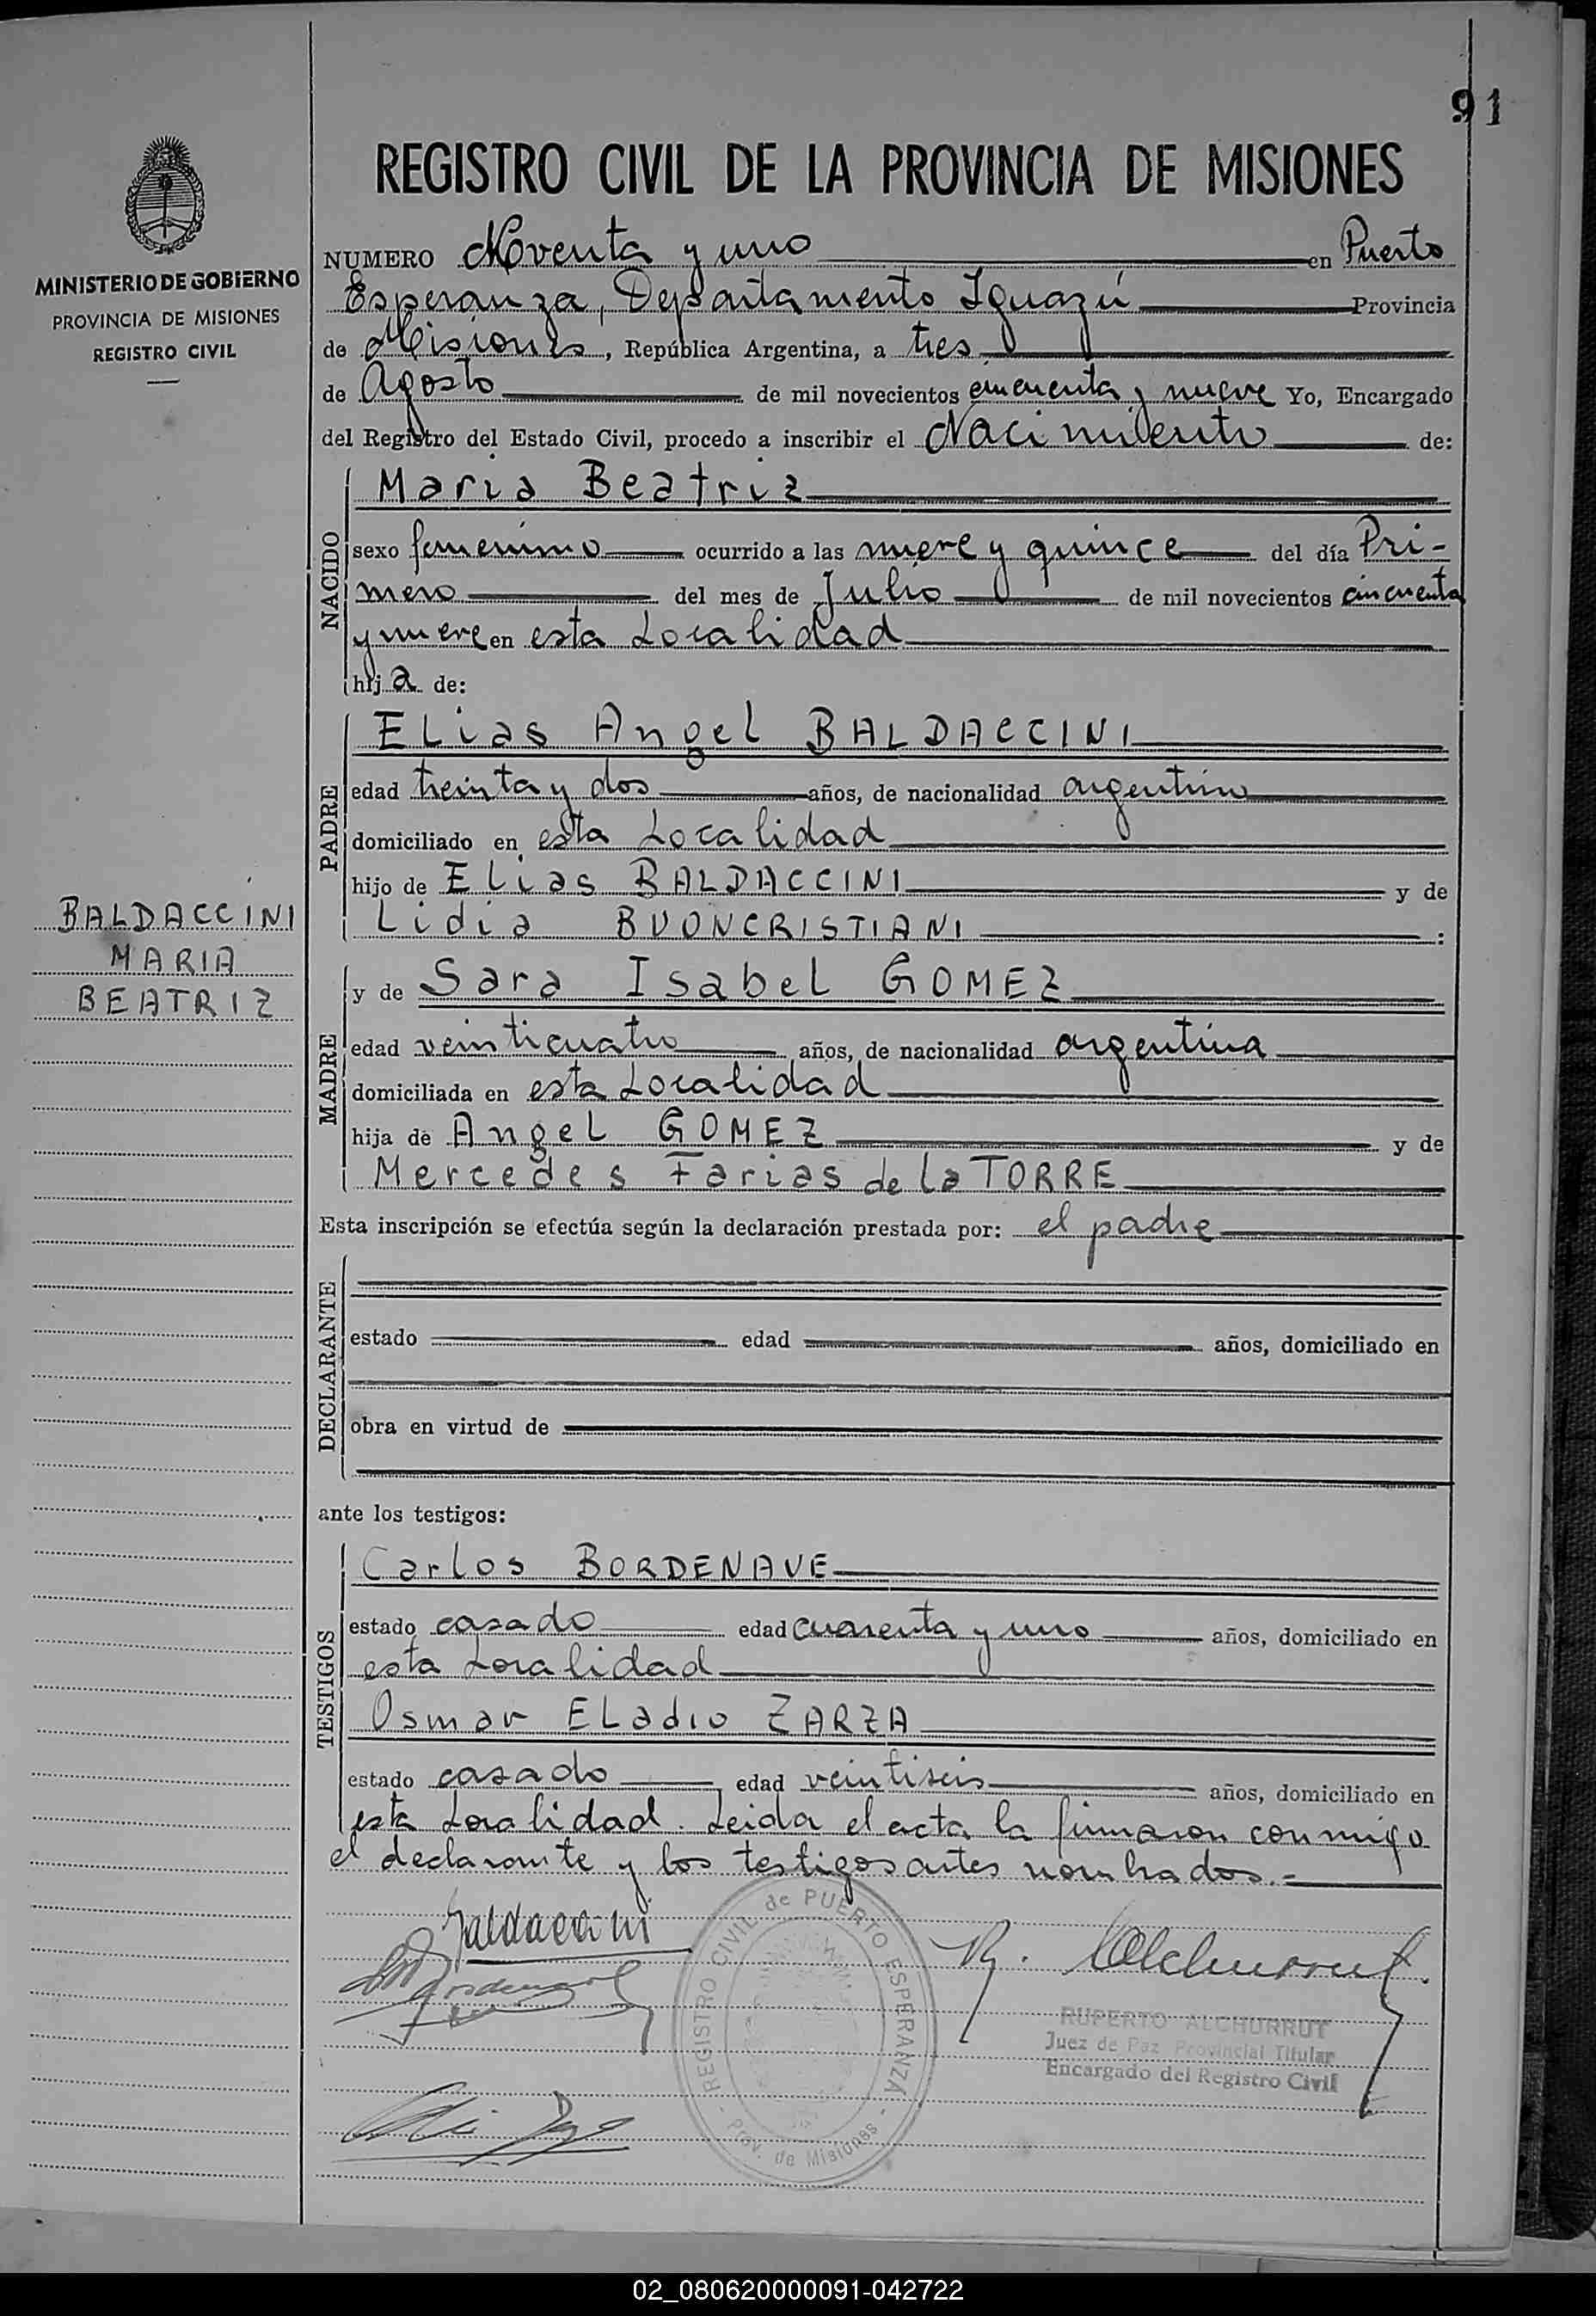 91
REGISTRO CIVIL DE LA PROVINCIA DE MISIONES
MINISTERIO DE GOBIERNO
PROVINCIA DE MISIONES
REGISTRO CIVIL
NUMERO Noventa y uno en Puerto
Esperanza, Departamento Iguazú Provincia
de Misiones, República Argentina, a tres
de Agosto de mil novecientos cincuenta y nueve Yo, Encargado
del Registro del Estado Civil, procedo a inscribir el Nacimiento de:
NACIDO
Maria Beatriz
sexo femenino ocurrido a las nueve y quince del día Pri-
mero del mes de Julio de mil novecientos cincuenta
y nueve en esta Localidad
hij a de:
PADRE
Elias Angel BALDACCINI
edad treinta y dos años, de nacionalidad argentino
domiciliado en esta Localidad
hijo de Elias BALDACCINI y de
Lidia BUONCRISTIANI :
BALDACCINI
MARIA
BEATRIZ
MADRE
y de Sara Isabel GOMEZ
edad veinticuatro años, de nacionalidad argentina
domiciliada en esta Localidad
hija de Angel GOMEZ y de
Mercedes Farias de la TORRE
Esta inscripción se efectúa según la declaración prestada por: el padre
DECLARANTE
estado edad años, domiciliado en
obra en virtud de
ante los testigos:
TESTIGOS
Carlos BORDENAVE
estado casado edad cuarenta y uno años, domiciliado en
esta Localidad
Osmar Eladio ZARZA
estado casado edad veintiseis años, domiciliado en
esta Localidad. Leida el acta la firmaron conmigo
el declarante y los testigos antes nombrados.-
Baldaccini
R. Alchurrut.
REGISTRO CIVIL de PUERTO ESPERANZA
- Prov. de Misiones -
RUPERTO ALCHURRUT
Juez de Paz Provincial Titular
Encargado del Registro Civil
02_080620000091-042722